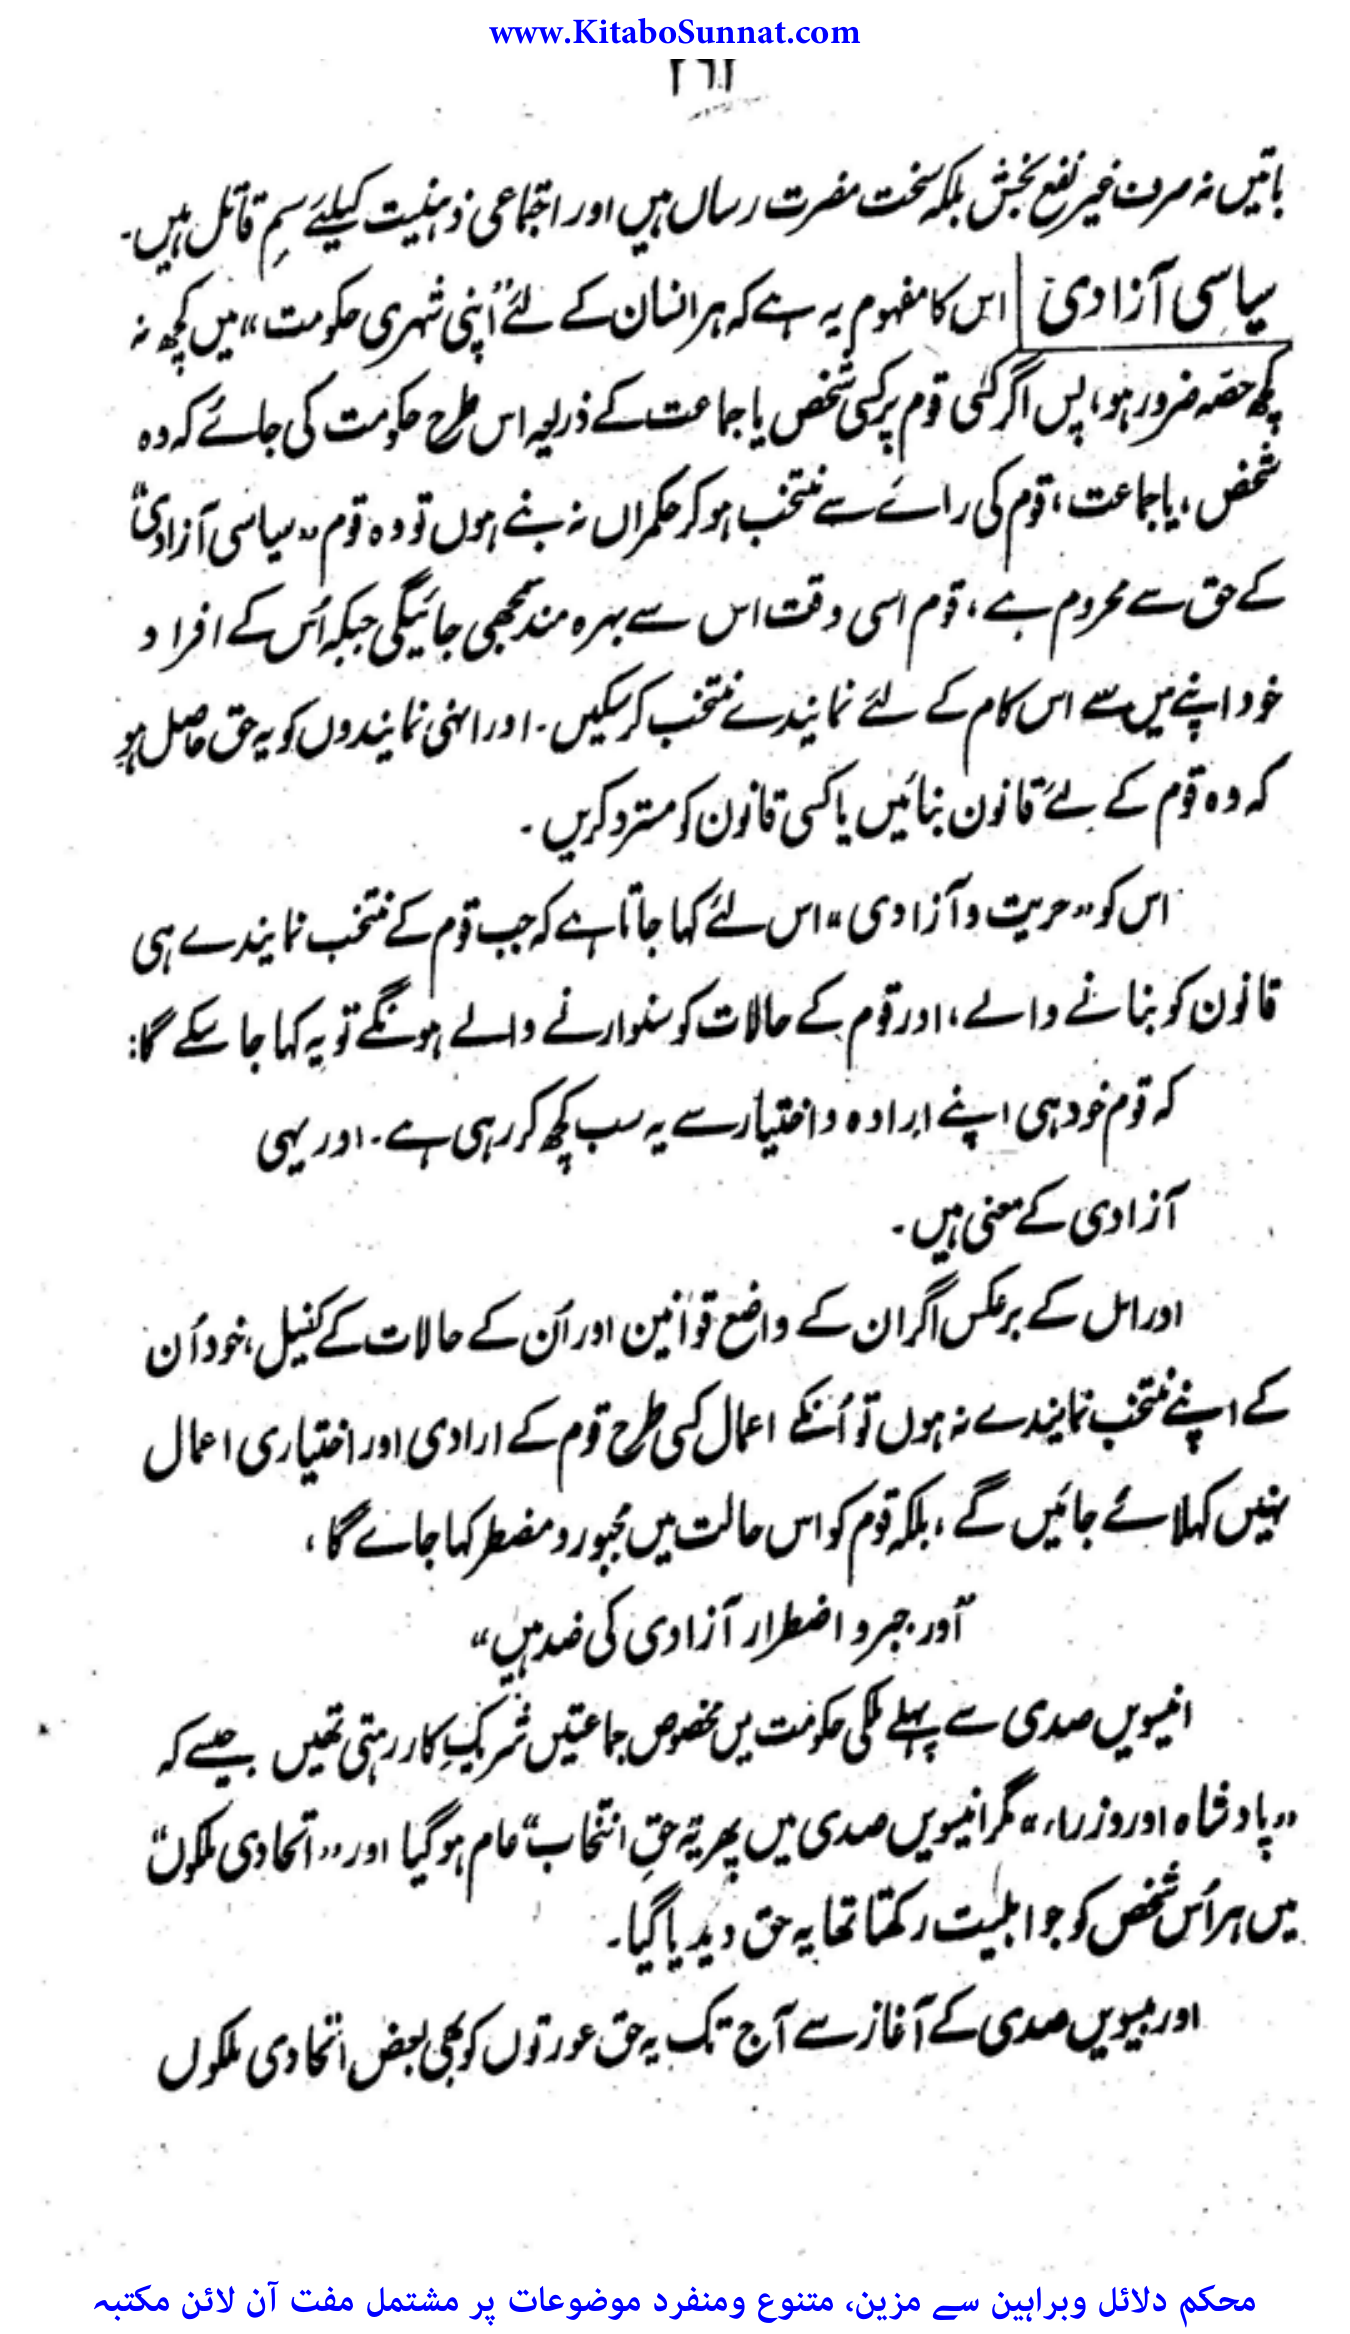 www.KitaboSunnat.com
۲۶۲
باتیں نہ صرف غیر نفع بخش بلکہ سخت مضرت رساں ہیں اور اجتماعی ذہنیت کیلئے سمِ قاتل ہیں۔
سیاسی آزادی | اس کا مفہوم یہ ہے کہ ہر انسان کے لئے "اپنی شہری حکومت" میں کچھ نہ
کچھ حصہ ضرور ہو، پس اگر کسی قوم پر کسی شخص یا جماعت کے ذریعہ اس طرح حکومت کی جائے کہ وہ
شخص، یا جماعت، قوم کی رائے سے منتخب ہو کر حکمراں نہ بنے ہوں تو وہ قوم "سیاسی آزادی"
کے حق سے محروم ہے، قوم اسی وقت اس سے بہرہ مند سمجھی جائیگی جبکہ اُس کے افراد
خود اپنے میں سے اس کام کے لئے نمایندے منتخب کر سکیں۔ اور انہی نمایندوں کو یہ حق حاصل ہو
کہ وہ قوم کے لئے قانون بنائیں یا کسی قانون کو مسترد کریں۔
اس کو "حریت و آزادی" اس لئے کہا جاتا ہے کہ جب قوم کے منتخب نمایندے ہی
قانون کو بنانے والے، اور قوم کے حالات کو سنوارنے والے ہونگے تو یہ کہا جا سکے گا:
کہ قوم خود ہی اپنے ارادہ و اختیار سے یہ سب کچھ کر رہی ہے۔ اور یہی
آزادی کے معنی ہیں۔
اور اس کے برعکس اگر ان کے واضع قوانین اور اُن کے حالات کے کفیل، خود اُن
کے اپنے منتخب نمایندے نہ ہوں تو اُنکے اعمال کسی طرح قوم کے ارادی اور اختیاری اعمال
نہیں کہلائے جائیں گے، بلکہ قوم کو اس حالت میں مجبور و مضطر کہا جائے گا،
"اور جبر و اضطرار آزادی کی ضد ہیں"
انیسویں صدی سے پہلے ملکی حکومت میں مخصوص جماعتیں شریکِ کار رہتی تھیں جیسے کہ
"پادشاہ اور وزراء" مگر انیسویں صدی میں پھر یہ "حقِ انتخاب" عام ہو گیا اور "اتحادی ملکوں"
میں ہر اُس شخص کو جو اہلیت رکھتا تھا یہ حق دیدیا گیا۔
اور بیسویں صدی کے آغاز سے آج تک یہ حق عورتوں کو بھی بعض اتحادی ملکوں
محکم دلائل وبراہین سے مزین، متنوع ومنفرد موضوعات پر مشتمل مفت آن لائن مکتبہ